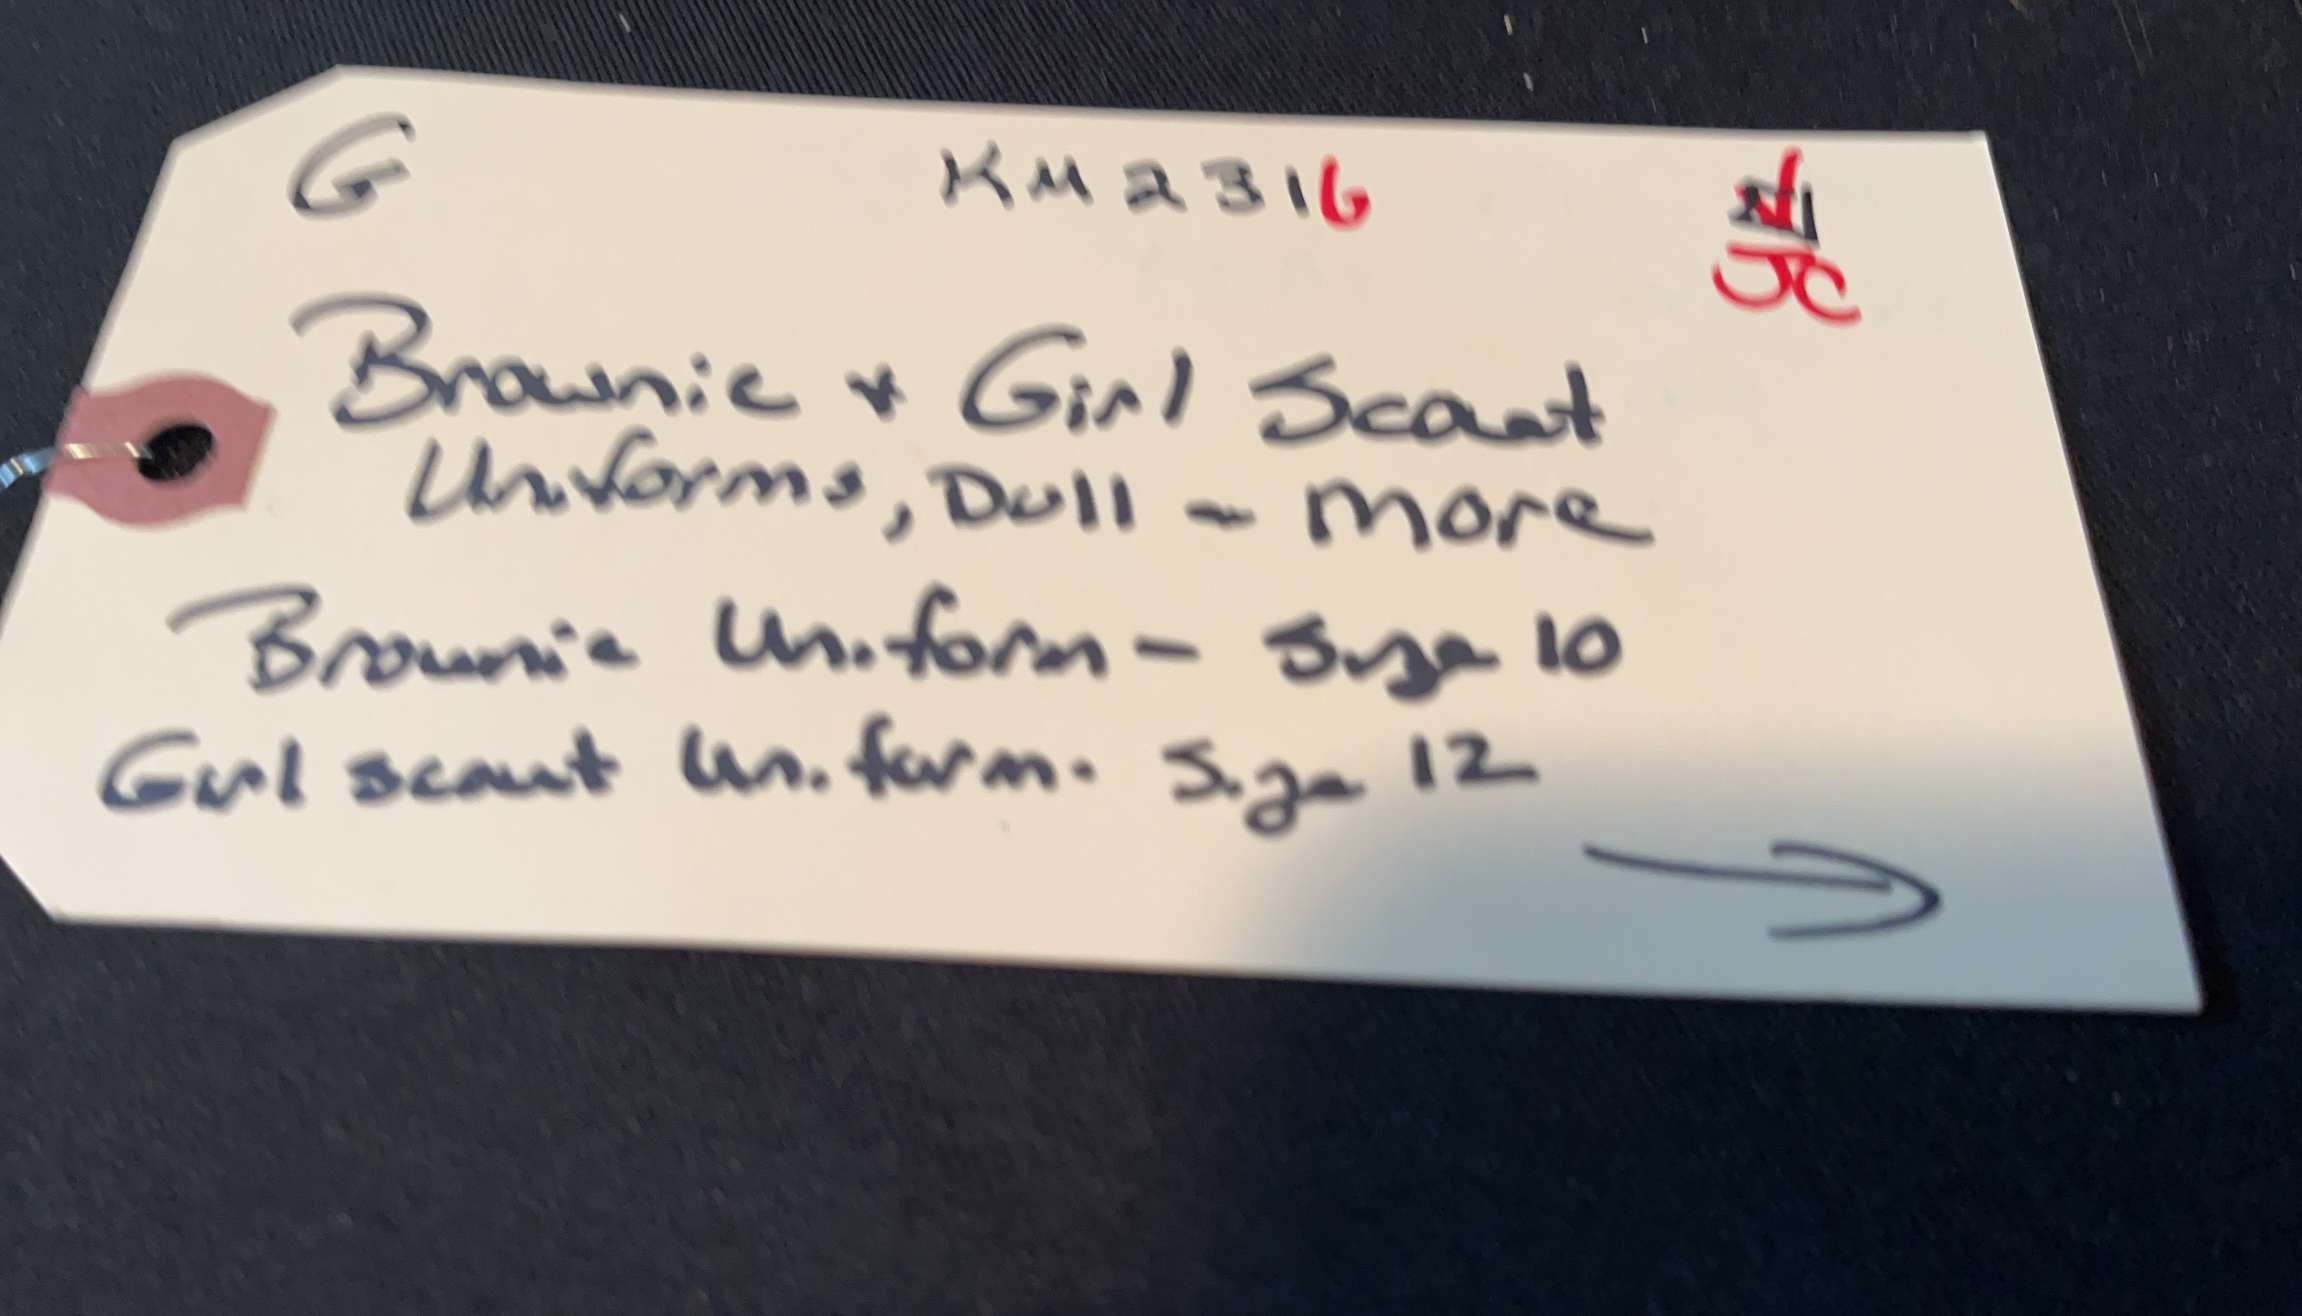 G KM2316
JC
Brownie & Girl Scout
Uniforms, Doll - more
Brownie Uniform - Size 10
Girl scout Uniform. Size 12